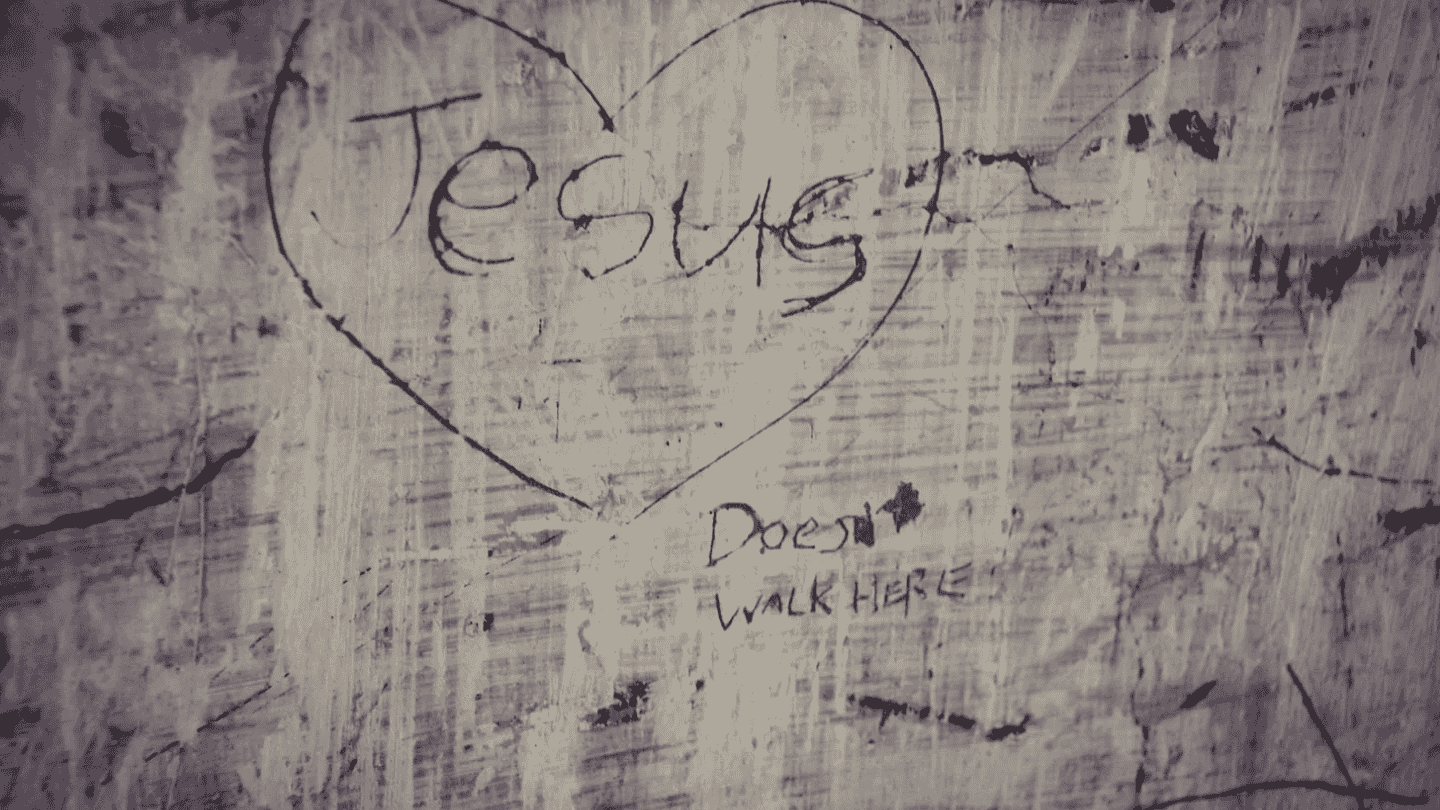 Jesus
Doesn't
WALK HERE